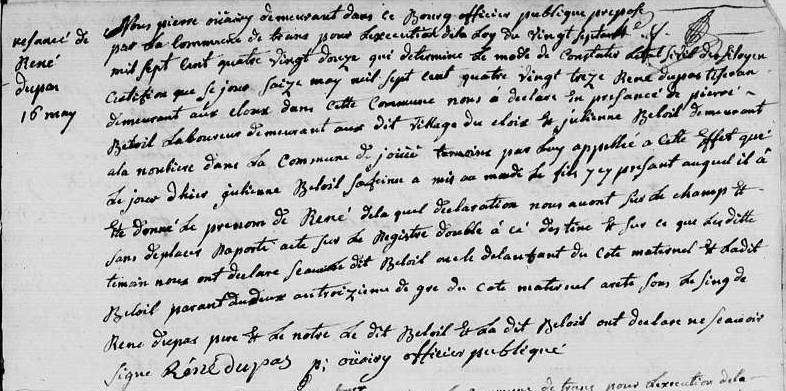 nesancé de
René
dupas
16 may
Nous pierre oüairy demeurant dans ce Bourg officier publique prepose
par La Commune de trans pour Lexecution de la Loy du vingt septembre
mil sept Cent quatre vingt douze qui determine Le mode de Constater Letat Civil des Citoyen
Certifion que se jour saize may mil sept Cent quatre vingt treze René dupas tisseran
demeurant aux eloux dans Cette Commune nous à declaré En presance de pierre
Beloil Laboureur demeurant aux dit village du elois et julienne Beloil demeurant
a la nouliere dans La Commune de joüée temoins par Luy appellée a Cette Effet que
Le jour d'hier julienne Beloil sa feme a mis au monde Le fils y cy présant auquel il à
Eté donné Le prenom de René de la quel declaration nous avont sur Le champ et
sans deplacer Raporté acte sur Le Registre double à cé destené et sur ce que Les ditte
temoin nous ont declare le dit Beloil oncle de Lanfant du Cote maternel et Ladit
Beloil parant du deux au troizieme de gre du Cote maternel areté sous Le sing de
René dupas pere et Le notre Le dit Beloil et La dit Beloil ont declare ne seavoir
signe René dupas p: oüairy officier publiqué
de trans pour Lexecution de la